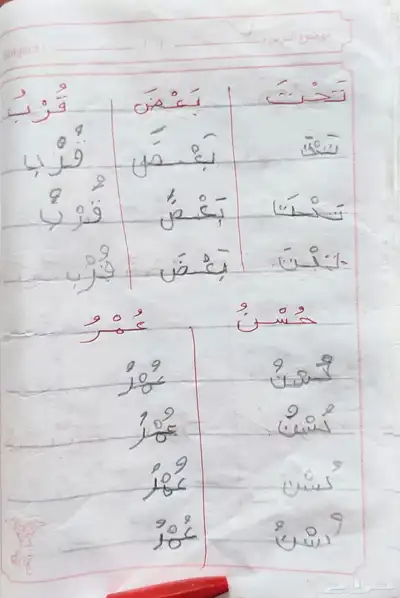 تَحْتَ بَعْضَ قُرْبُ
تَحْتَ بَعْضَ قُرْبُ
تَحْتَ بَعْضَ قُرْبُ
تَحْتَ بَعْضَ قُرْبُ
حُسْنُ عُمْرُ
حُسْنُ عُمْرُ
حُسْنُ عُمْرُ
حُسْنُ عُمْرُ
حُسْنُ عُمْرُ